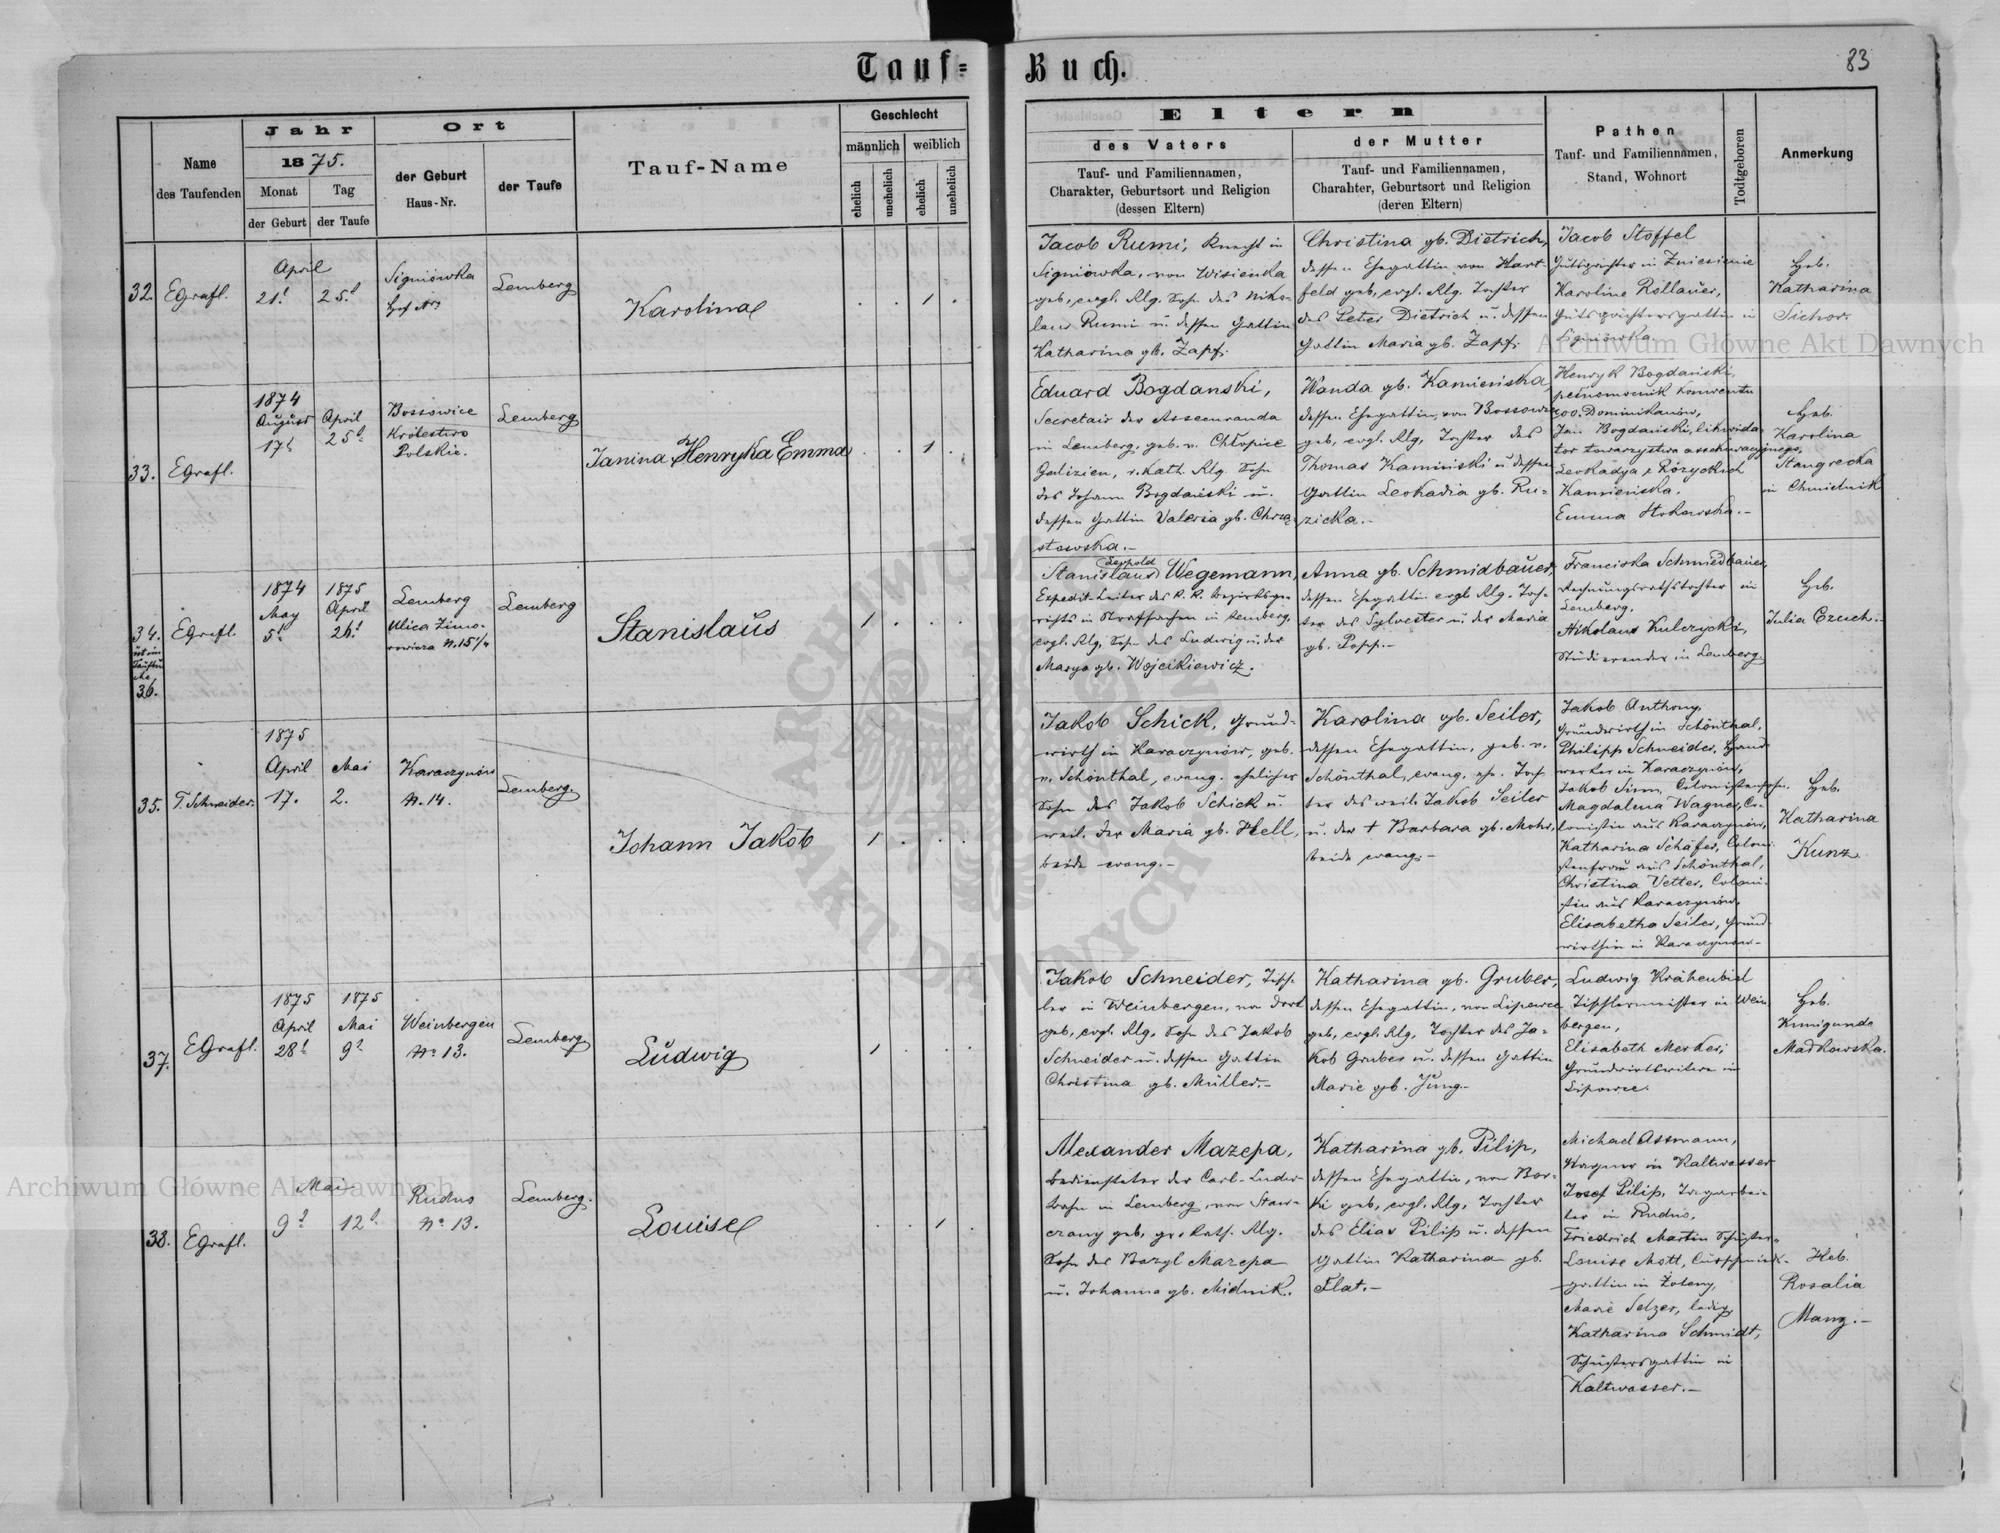 Tauf=
Buch.
83
Name
des Taufenden
Jahr
1875.
Monat
Tag
der Geburt
der Taufe
Ort
der Geburt
Haus-Nr.
der Taufe
Tauf-Name
Geschlecht
männlich
weiblich
ehelich
unehelich
ehelich
unehelich
Eltern
des Vaters
Tauf- und Familiennamen,
Charakter, Geburtsort und Religion
(dessen Eltern)
der Mutter
Tauf- und Familiennamen,
Charakter, Geburtsort und Religion
(deren Eltern)
Pathen
Tauf- und Familiennamen,
Stand, Wohnort
Todtgeboren
Anmerkung
32.
EGrafl.
April
21.
25.
Signiówka
Lemberg
Karolina
1
Jacob Rumi, Knecht in
Signiówka, von Wisienka
geb, evgl. Rlg. Sohn des Niko-
laus Rumi u. dessen Gattin
Katharina gb. Zapf.
Christina gb. Dietrich,
dessen Ehegattin von Hart-
feld geb, evgl. Rlg. Tochter
des Peter Dietrich u. dessen
Gattin Maria gb. Zapf.
Jacob Stoffel
Gutspächter in Zniesienie
Karoline Rollauer,
Gutspächtersgattin in
Signiówka.
Heb.
Katharina
Sichor.
33.
EGrafl.
1874
August
17.
April
25.
Bossowice
Królestwo
Polskie.
Lemberg
Janina Henryka Emma
1
Eduard Bogdanski,
Secretair der Assecuranda
in Lemberg, geb. v. Chłopice
Galizien, r. Kath. Rlg. Sohn
des Johann Bogdański u.
dessen Gattin Valeria gb. Chrza-
stowska.-
Wanda gb. Kamieńska,
dessen Ehegattin, von Bossowice
geb, evgl. Rlg, Tochter des
Thomas Kaminiski u dessen
Gattin Leokadia gb. Ru-
zicka.-
Henryk Bogdański,
pełnomocnik konwentu
oo. Dominikanów,
Jan Bogdański, likwida-
tor towarzystwa assekuracyjnego,
Leokadya z Różyckich
Kamieńska.
Emma
Heb.
Karolina
Stangrecka
in Chmielnik
34.
ist im
36.
EGrafl.
1874
May
5.
1875
April
26.
Lemberg
Ulica Zimo-
rowicza N. 15 1/4
Lemberg
Stanislaus
1
Leopold
Stanislaus Wegemann,
Expedit-Leiter des K. K. Bezirksge-
richts in Strafsachen in Lemberg,
evgl. Rlg, Sohn des Ludwig u. der
Marya gb. Wojcikiewicz.
Anna gb. Schmidbauer,
dessen Ehegattin evgl Rlg. Toch-
ter des Sylvester u. der Maria
gb. Popp.-
Franciska Schmiedbauer,
Rechnungsrathstochter in
Lemberg.
Nikolaus Kulczycki,
Studierender in Lemberg.
Heb.
Julia Czuch.
35.
T. Schneider.
1875
April
17.
Mai
2.
Karaczynów
N. 14.
Lemberg.
Johann Jakob
1
Jakob Schick, Grund-
wirth in Karaczynów, geb.
v. Schönthal, evang. ehelicher
Sohn des Jakob Schick u.
weil. der Maria gb. Hell,
beide evang.-
Karolina gb. Seiler,
dessen Ehegattin, geb. v.
Schönthal, evang. eh. Toch
ter des weil. Jakob Seiler
u. der † Barbara gb. Mohr,
beide evang.-
Jakob Anthony,
Grundwirth in Schönthal,
Philipp Schneider, Hand
werker in Karaczynów,
Jakob Sirm, Colonistensohn.
Magdalena Wagner, Co-
lonistin aus Karaczynów,
Katharina Schäfer, Coloni-
stenfrau aus Schönthal,
Christina Vetter, Coloni-
stin aus Karaczynów.
Elisabetha Seiler, Grund
wirthin in Karaczynów-
Heb.
Katharina
Kunz.
37.
EGrafl.
1875
April
28.
1875
Mai
9.
Weinbergen
No 13.
Lemberg
Ludwig
1
Jakob Schneider, Tisch-
ler in Weinbergen, von dort
geb, evgl. Rlg, Sohn des Jakob
Schneider u. dessen Gattin
Christina gb. Müller.-
Katharina gb. Gruber,
dessen Ehegattin, von Lipowce
geb, evgl. Rlg, Tochter des Ja-
kob Gruber u. dessen Gattin
Marie gb. Jung.-
Ludwig Krähenbiel
Tischlermeister in Wein
bergen,
Elisabeth Merker,
in
Lipowce.
Heb.
Kunigunde
Madkowska.
38.
EGrafl.
Mai
9.
12.
Rudno
No 13.
Lemberg.
Louise
1
Alexander Mazepa,
Bediensteter der Carl-Ludw-
bahn in Lemberg, von Staw-
czany geb, gr. Kath. Rlg.
Sohn des Bazyl Mazepa
u. Johanna gb. Midnik.
Katharina gb. Pilip,
dessen Ehegattin, von Bor-
ki geb, evgl. Rlg, Tochter
des Elias Pilip u. dessen
Gattin Katharina gb.
Flat.-
Michael Assmann,
Wagner in Kaltwasser
Josef Pilip, Tagarbei-
ter in Rudno,
Friedrich Martin Schuster-
Louise Mott,
gattin in
Marie Selzer, ledig,
Katharina Schmidt,
Schustersgattin in
Kaltwasser.-
Heb.
Rosalia
Manz.-
Archiwum Główne Akt Dawnych
Archiwum Główne Akt Dawnych
ARCHIWUM
AKT DAWNYCH